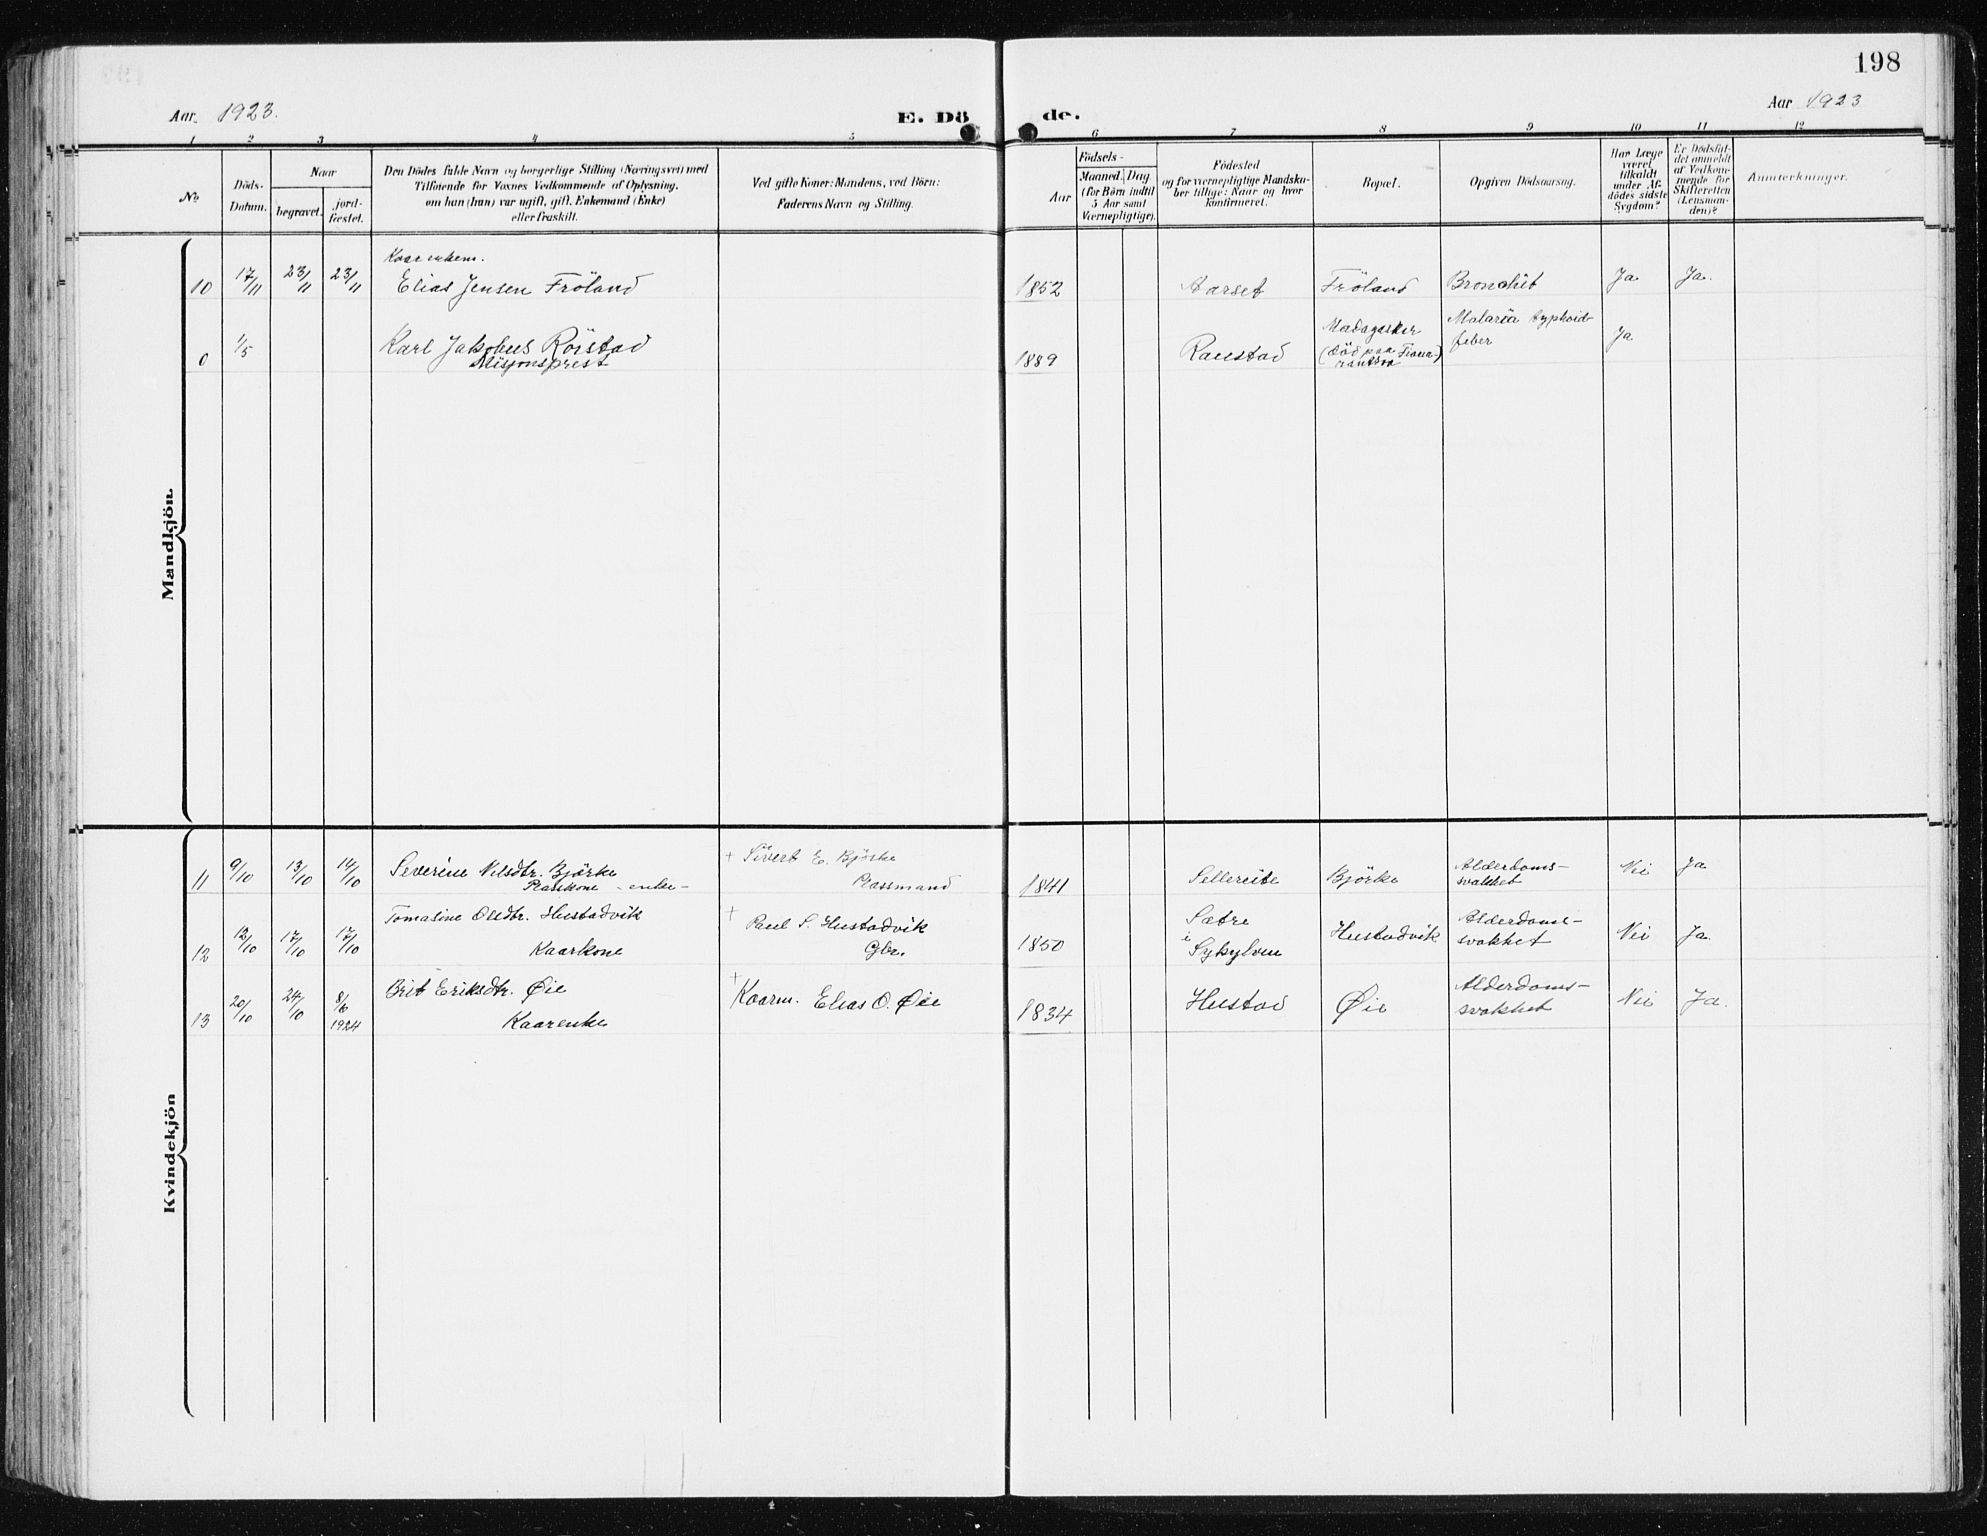 198
Aar 1923.
E. Dö
de.
Aar 1923
1 2 3 4 5 6 7 8 9 10 11 12
No
Döds-
Datum.
Naar
begravet.
jord-
fæstet.
Den Dödes fulde Navn og borgerlige Stilling (Næringsvei) med
Tilföiende for Voxnes Vedkommende af Oplysning,
om han (hun) var ugift, gift, Enkemand (Enke)
eller fraskilt.
Ved gifte Koner: Mandens, ved Börn:
Faderens Navn og Stilling.
Födsels-
Aar
Maaned. Dag
(for Börn indtil
5 Aar samt
Værnepligtige).
Födested
og for værnepligtige Mandska-
ber tillige: Naar og hvor
konfirmeret.
Bopæl.
Opgiven Dödsaarsag.
Har Læge
været
tilkaldt
under Af-
dödes sidste
Sygdom?
Er Dödsfal-
det anmeldt
af Vedkom-
mende for
Skifteretten
(Lensman-
den)?
Anmærkninger.
Mandkjön.
10 17/11 23/11 23/11 Kaarenkem.
Elias Jensen Fröland 1852 Aarset Fröland Bronchit Ja Ja.
0 1/5 Karl Jakobus Röistad
Misjonsprest 1889 Raustad Madagaskar
(död paa Fiana-
rantsoa) Malaria typhoid-
feber Ja
Kvindekjön
11 9/10 13/10 14/10 Severine Nilsdtr. Björke
Plasskone - enke - + Sivert E. Björke
Plassmand 1841 Sellereite Björke Alderdoms-
svakhet Nei Ja
12 12/10 17/10 17/10 Tomasine Olsdtr. Hustadvik
Kaarkone + Paul S. Hustadvik
Gbr. 1850 Sætre
i Sykylven Hustadvik Alderdoms-
svakhet Nei Ja.
13 20/10 24/10 8/6
1924 Brit Eriksdtr. Øie
Kaarenke + Kaarm. Elias O. Øie 1834 Hustad Øie Alderdoms-
svakhet Nei Ja.